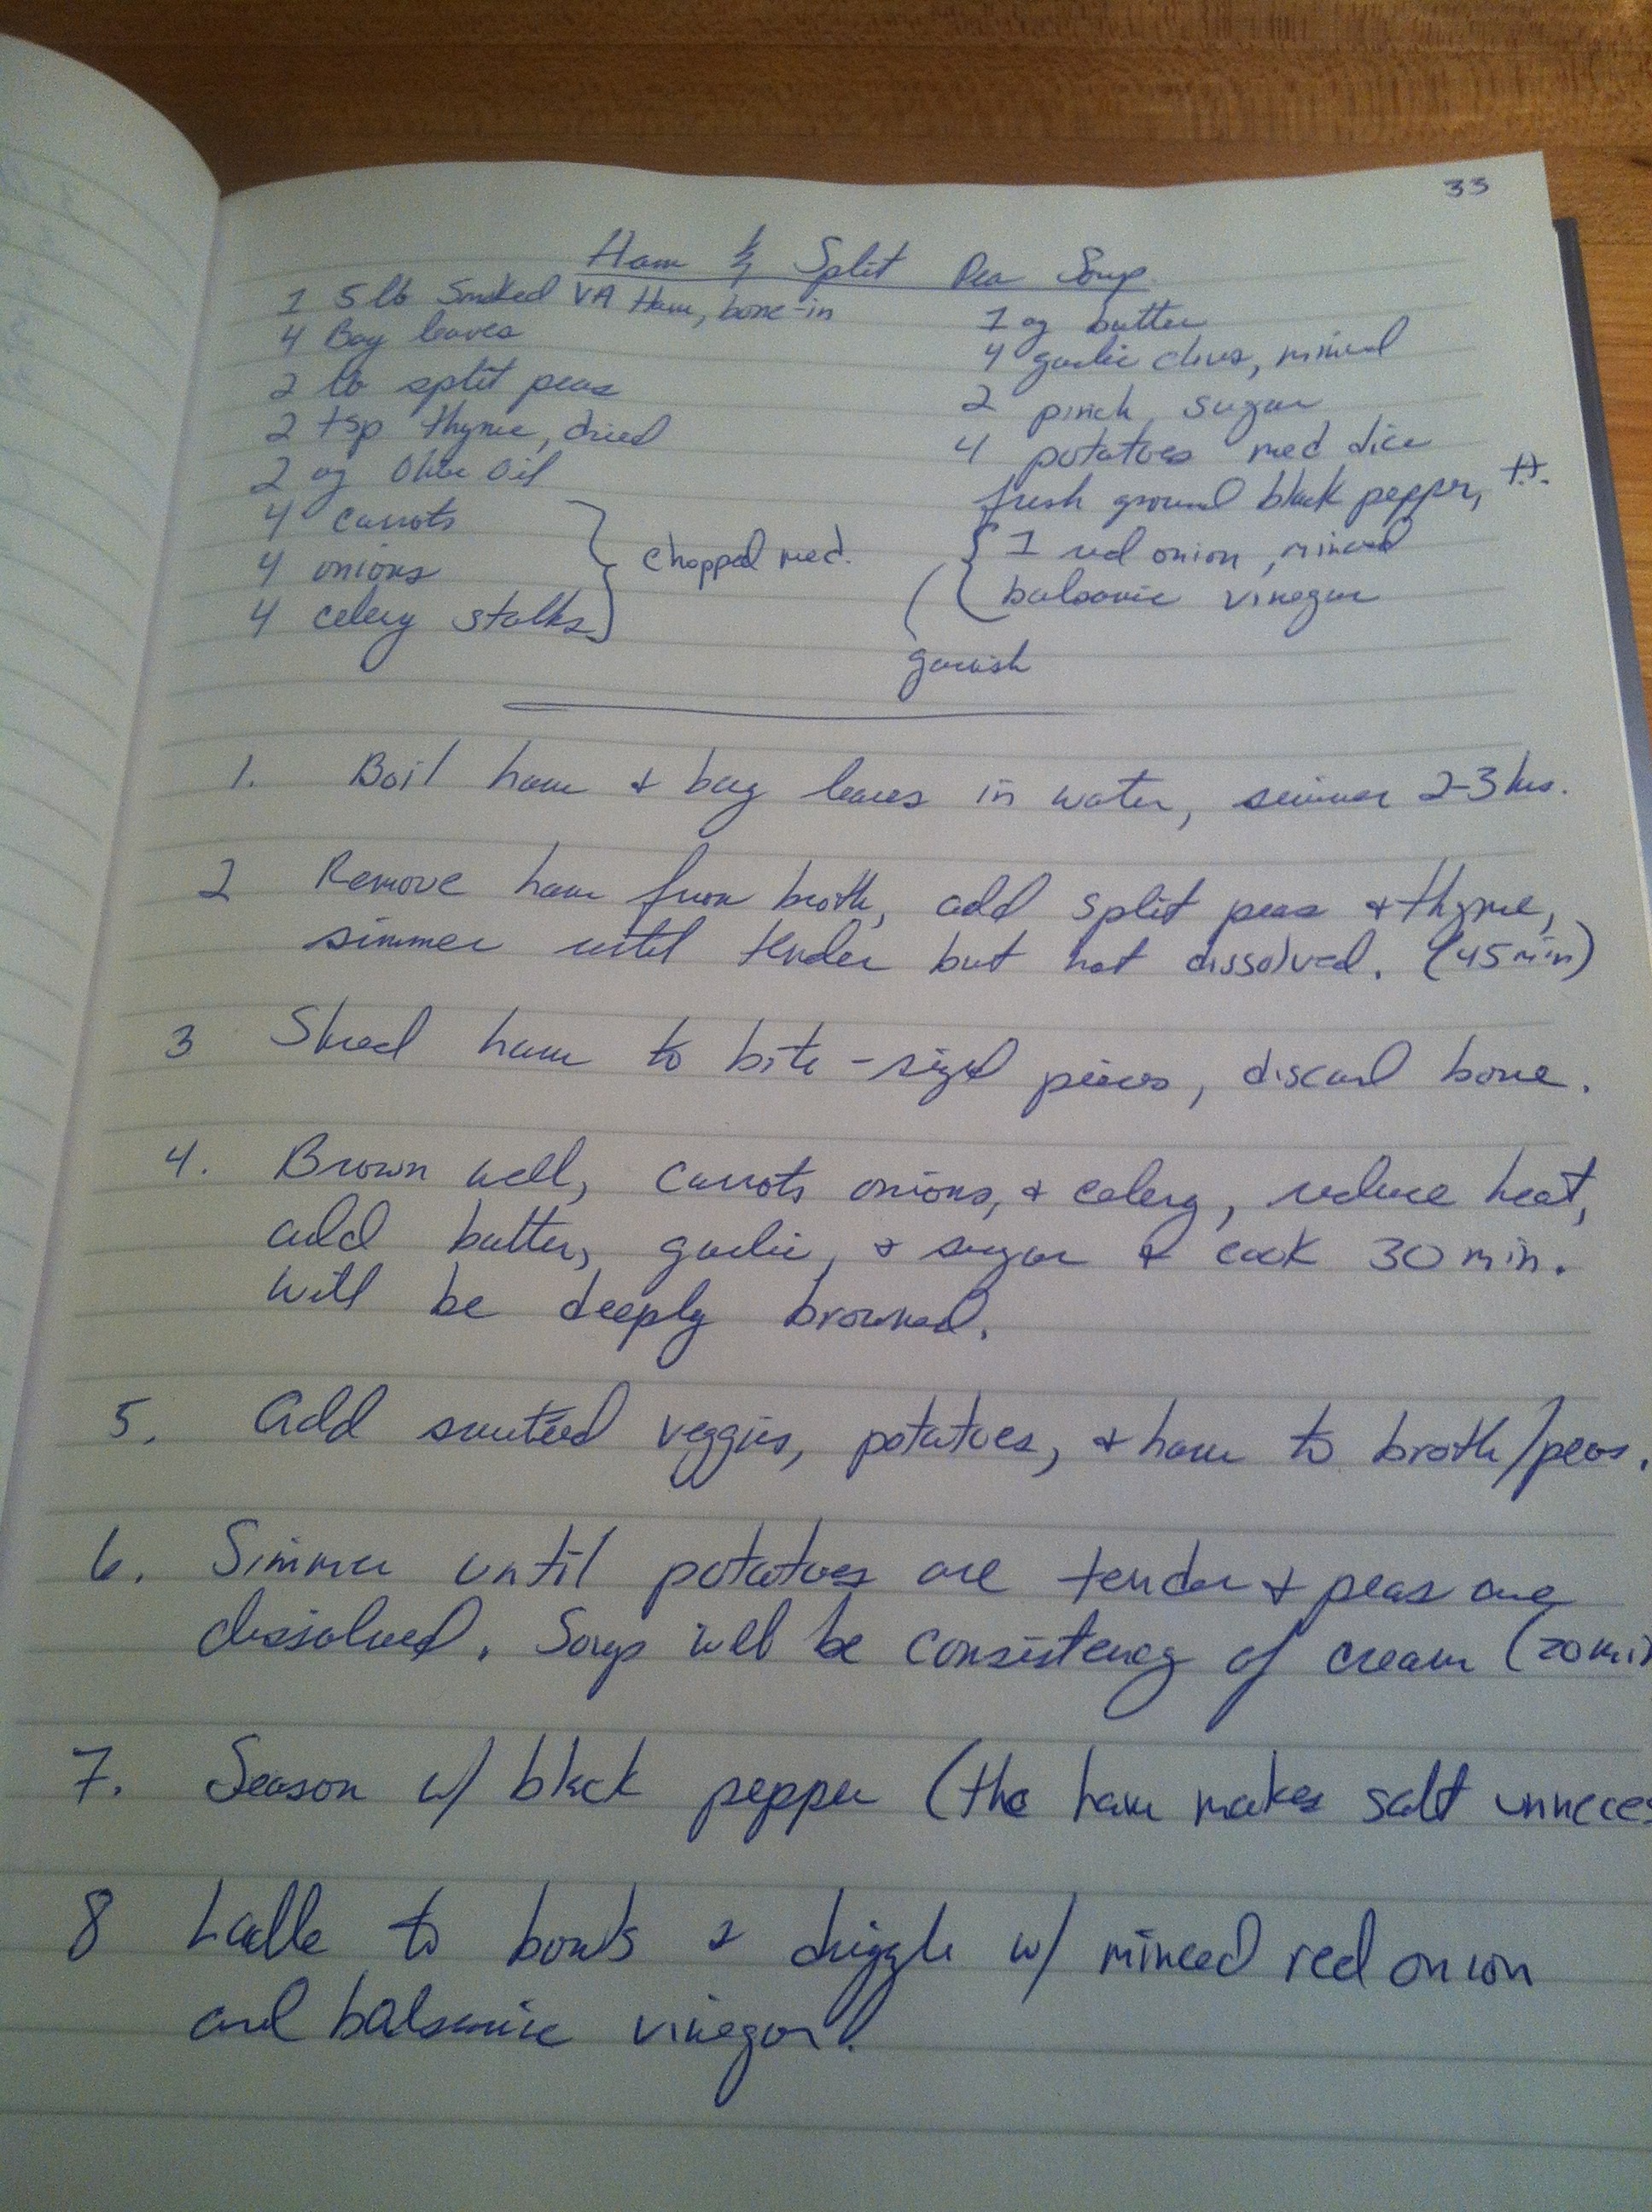 33
Ham & Split Pea Soup
1 5 lb Smoked VA Ham, bone-in
4 Bay leaves
2 lb split peas
2 tsp thyme, dried
2 oz Olive Oil
4 carrots
4 onions
4 celery stalks
chopped med.
1 oz butter
4 garlic cloves, minced
2 pinch sugar
4 potatoes med dice
fresh ground black pepper, t.t.
1 red onion, minced
balsamic vinegar
garnish
1. Boil ham & bay leaves in water, simmer 2-3 hrs.
2 Remove ham from broth, add split peas & thyme,
simmer until tender but not dissolved. (45 min)
3 Shred ham to bite-sized pieces, discard bone.
4. Brown well, carrots onions, & celery, reduce heat,
add butter, garlic, & sugar & cook 30 min.
will be deeply browned.
5. Add sautéed veggies, potatoes, & ham to broth/peas.
6. Simmer until potatoes are tender & peas are
dissolved. Soup will be consistency of cream (20 min
7. Season w/ black pepper (the ham makes salt unneces
8 Ladle to bowls & drizzle w/ minced red onion
and balsamic vinegar.